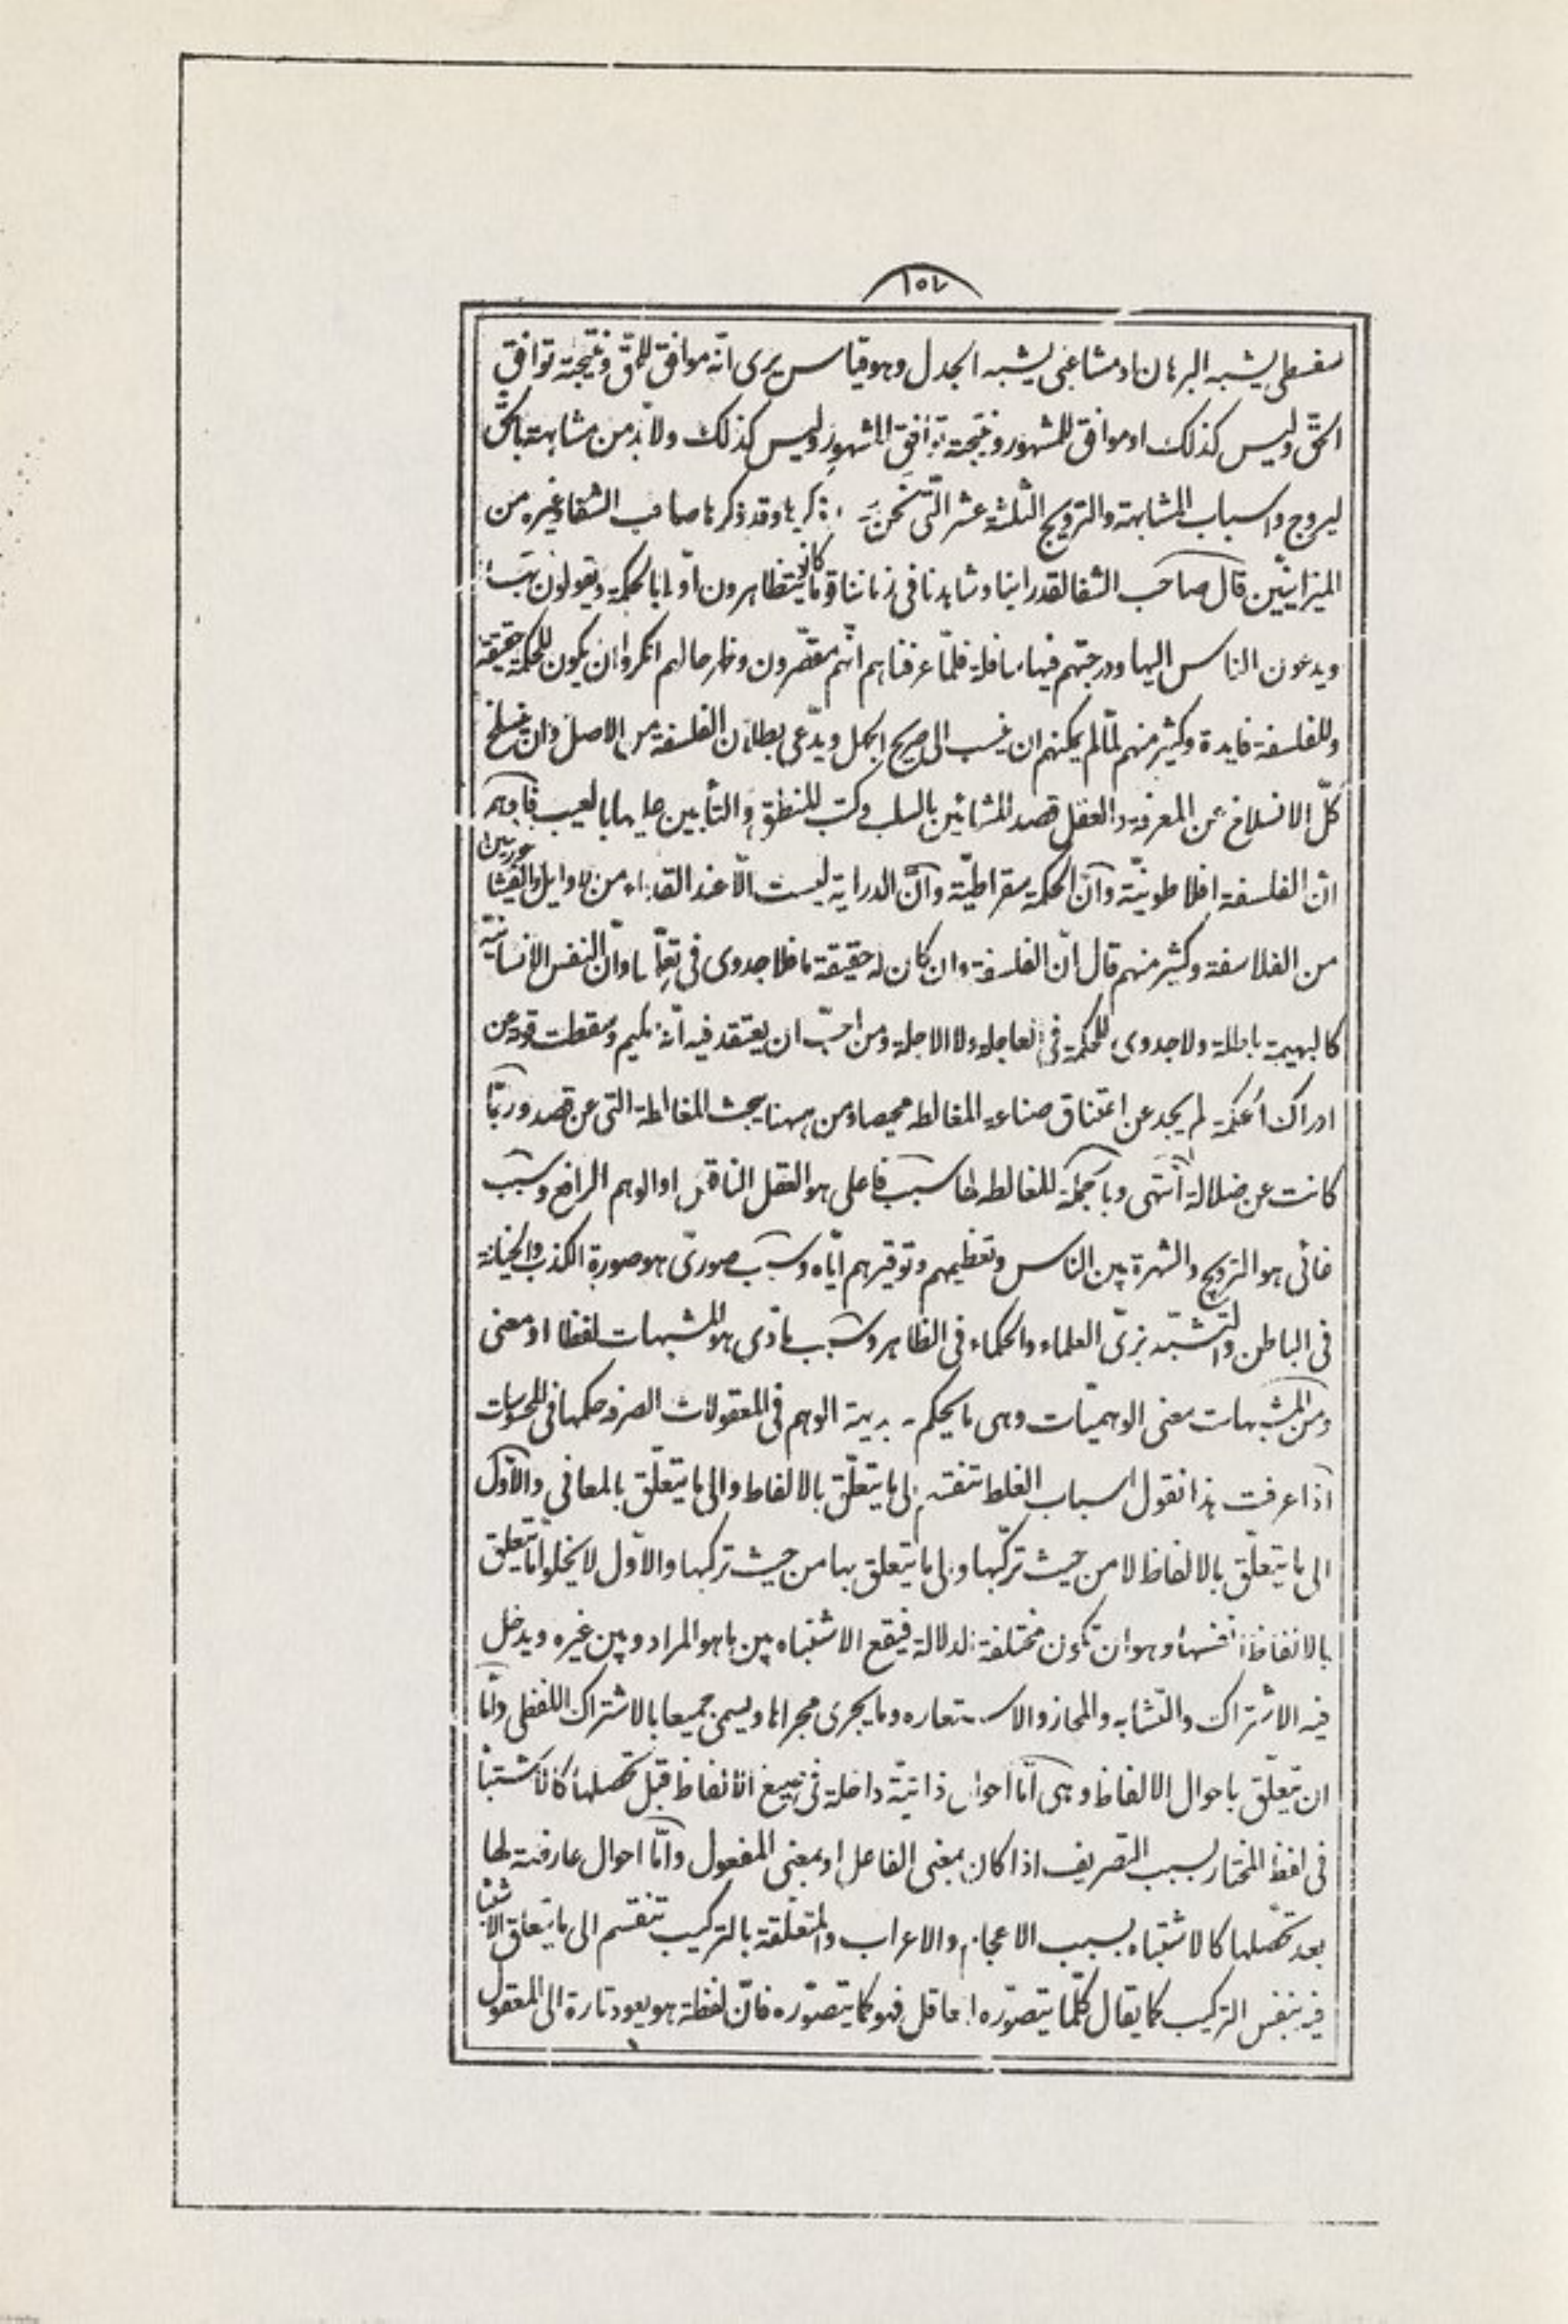 ١٥٧
سفسطی یشبه البرهان او مشاغبی یشبه الجدل وهو قیاس یری انّه موافق للحقّ ونتیجته توافق
الحقّ ولیس کذلک او موافق للمشهور ونتیجته توافق المشهور ولیس کذلک ولا بّد من مشابهته بالحقّ
لیروج واسباب المشابهة والترویج الثلثة عشر الّتی نحن نذکرها وقد ذکرها صاحب الشفا وغیره من
المیزانیّین قال صاحب الشفا لقد راینا وشاهدنا فی زماننا قوما کانوا یتظاهرون اوّلا بالحکمة ویقولون بها
ویدعون الناس الیها ودرجتهم فیها سافلة فلمّا عرفناهم انّهم مقصّرون وظهر حالهم انکروا ان یکون للحکمة حقیقة
وللفلسفة فایدة وکثیر منهم لمّا لم یمکنهم ان ینسب الی صریح الجهل ویدّعی بطلان الفلسفة من الاصل وان ینسلخ
کلّ الانسلاخ عن المعرفة والعقل قصد المشائین بالسلب وکتب المنطق والتأبین علیها بالعیب فاوهم
انّ الفلسفة افلاطونیّة وانّ الحکمة سقراطیّة وانّ الدرایة لیست الّا عند القدماء من الاوایل والفیثاغوریین
من الفلاسفة وکثیر منهم قال انّ الفلسفة وان کان له حقیقة ما فلا جدوی فی تعلّمها وانّ النفس الانسانیّة
کالبهیمة باطلة ولا جدوی للحکمة فی العاجلة ولا الاجلة ومن احبّ ان یعتقد فیه انّه حکیم وسقطت قوته عن
ادراک الحکمة لم یجد عن اعتناق صناعة المغالطه محیصا ومن ههنا یبحث المغالطة التی عن قصد وربّما
کانت عن ضلالة انتهی وبالجملة للمغالطه لها سبب فاعلی هو العقل الناقص او الوهم الرافع وسبب
غائی هو الترویج والشهرة بین الناس وتعظیمهم وتوقیرهم ایّاه وسبب صوریّ هو صورة الکذب والخیانة
فی الباطن والتشبّه بزیّ العلماء والحکماء فی الظاهر وسبب مادّی هو المشبهات لفظا او معنی
ومن المشبهات معنی الوهمیّات وهی ما یحکم به بدیهة الوهم فی المعقولات الصرفه حکمها فی المحسوسات
اذا عرفت هذا نقول اسباب الغلط تنقسم الی ما یتعلّق بالالفاظ والی ما یتعلّق بالمعانی والاوّل
الی ما یتعلّق بالالفاظ لا من حیث ترکّبها والی ما یتعلق بها من حیث ترکبها والاوّل لا یخلوا امّا یتعلق
بالالفاظ انفسها وهو ان تکون مختلفة الدلالة فیقع الاشتباه بین ما هو المراد وبین غیره ویدخل
فیه الاشتراک والتّشابه والمجاز والاستعاره وما یجری مجراها ویسمی جمیعا بالاشتراک اللفظی وامّا
ان یتعلّق باحوال الالفاظ وهی امّا احوال ذاتیّة داخلة فی صیغ الالفاظ قبل تحصلها کالاشتباه
فی لفظ المختار بسبب التصریف اذا کان بمعنی الفاعل او بمعنی المفعول وامّا احوال عارضة لها
بعد تحصّلها کالاشتباه بسبب الاعجام والاعراب والمتعلّقة بالترکیب تنقسم الی ما یتعلق الاشتباه
فیه بنفس الترکیب کما یقال کلّما یتصوّره العاقل فهو کما یتصوّره فانّ لفظة هو یعود تارة الی المعقول